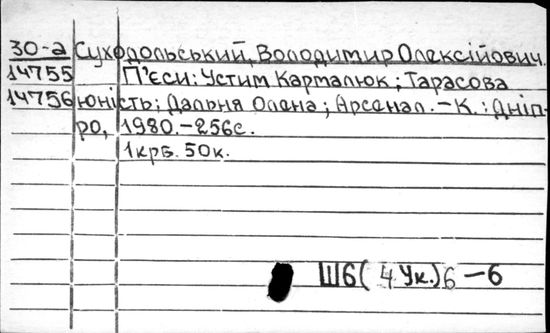 30-а Суходольський, Володимир Олексійович.
14755 П'єси: Устим Кармалюк; Тарасова
14756 юність; Дальня Олена; Арсенал.-К.: Дніп-
ро, 1980.-256с.
1крб. 50к.
Ш6(4Ук.)6-6